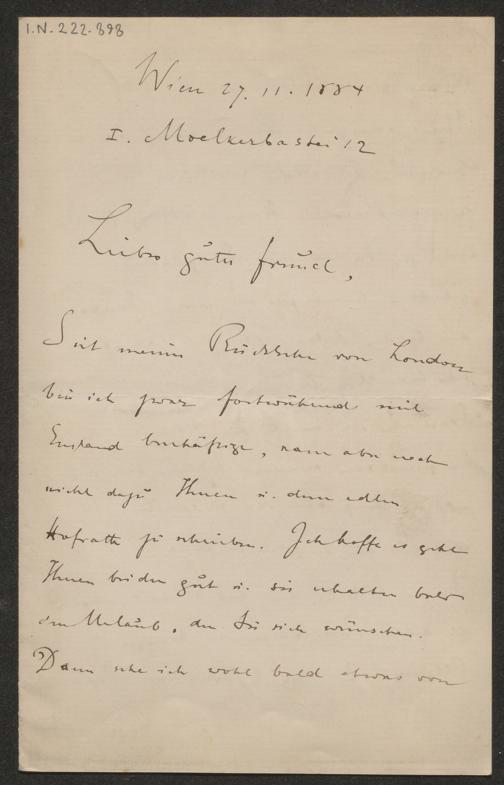 I.N. 222.898
Wien 27. 11. 1884
I. Moelkerbastei 12
Lieber guter Freund,
Seit meiner Rückkehr von London
bin ich zwar fortwährend mit
England beschäftigt, kam aber noch
nicht dazu Ihnen u. dem edlen
Hofrath zu schreiben. Ich hoffe es geht
Ihnen beiden gut u. Sie erhalten bald
den Urlaub, den Sie sich wünschen.
Dann sehe ich wohl bald etwas von